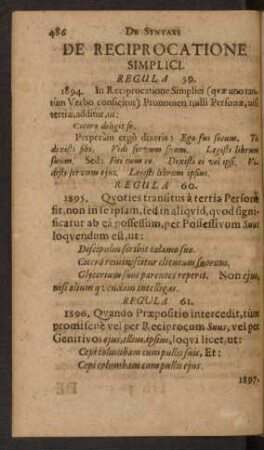 486 DE SYNTAXI
DE RECIPROCATIONE
SIMPLICI.
REGULA 59.
1894. In Reciprocatione Simplici (quæ uno tan-
tùm Verbo conficitur) Pronomen nulli Personæ, nisi
tertiæ, additur, ut:
Cicero diligit se.
Perperàm ergò dixeris: Ego fui secum. Tu
dixisti sibi. Vidi servum suum. Legisti librum
suum. Sed: Fui cum eo. Dixisti ei vel ipsi. Vi-
disti servum ejus. Legisti librum ipsius.
REGULA 60.
1895. Qvoties transitus à tertia Persona
fit, non in se ipsam, sed in aliqvid, qvod signi-
ficatur ab eâ possessum, per Possessivum Suus
loqvendum est, ut:
Discipulus scribit calamo suo.
Cicero reminiscitur clientum suorum.
Glycerium suos parentes reperit. Non ejus,
nisi alium qvendam intelligas.
REGULA 61.
1896. Qvando Præpositio intercedit, tùm
promiscuè vel per Reciprocum Suus, vel per
Genitivos ejus, illius, ipsius, loqvi licet, ut:
Cepi columbam cum pullis suis, Et:
Cepi columbam cum pullis ejus.
1897.